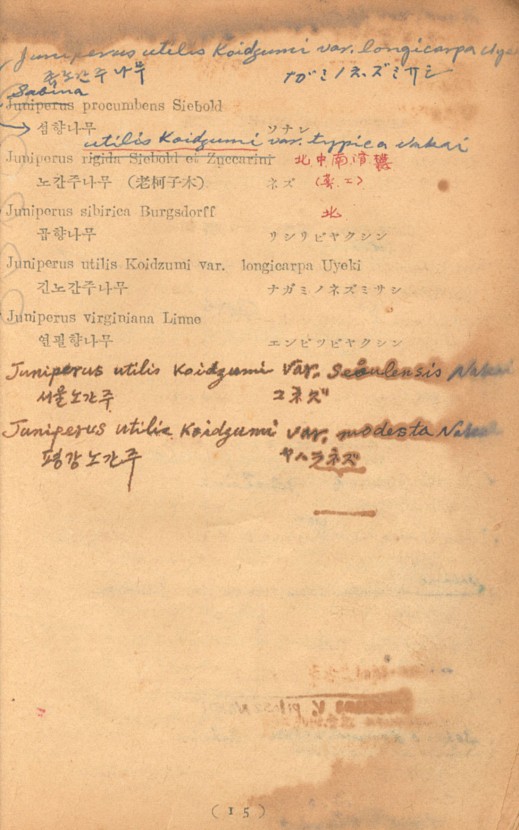 Juniperus utilis Koidzumi var. longicarpa Uye
좀노간주나무 ガミノネズミサシ
Sabina
Juniperus procumbens Siebold
섬향나무 ソナン
utilis Koidzumi var. typica Nakai
Juniperus rigida Siebold et Zuccarini 北中南濟鬱
노간주나무 (老柯子木) ネズ
Juniperus sibirica Burgsdorff 北
곱향나무 リシリビヤクシン
Juniperus utilis Koidzumi var. longicarpa Uyeki
긴노간주나무 ナガミノネズミサシ
Juniperus virginiana Linne
연필향나무 エンピツビヤクシン
Juniperus utilis Koidzumi var. Seoulensis Nakai
서울노간주 コネズ
Juniperus utilis Koidzumi var. modesta Nakai
평강노간주 ヤハラネズ
(15)